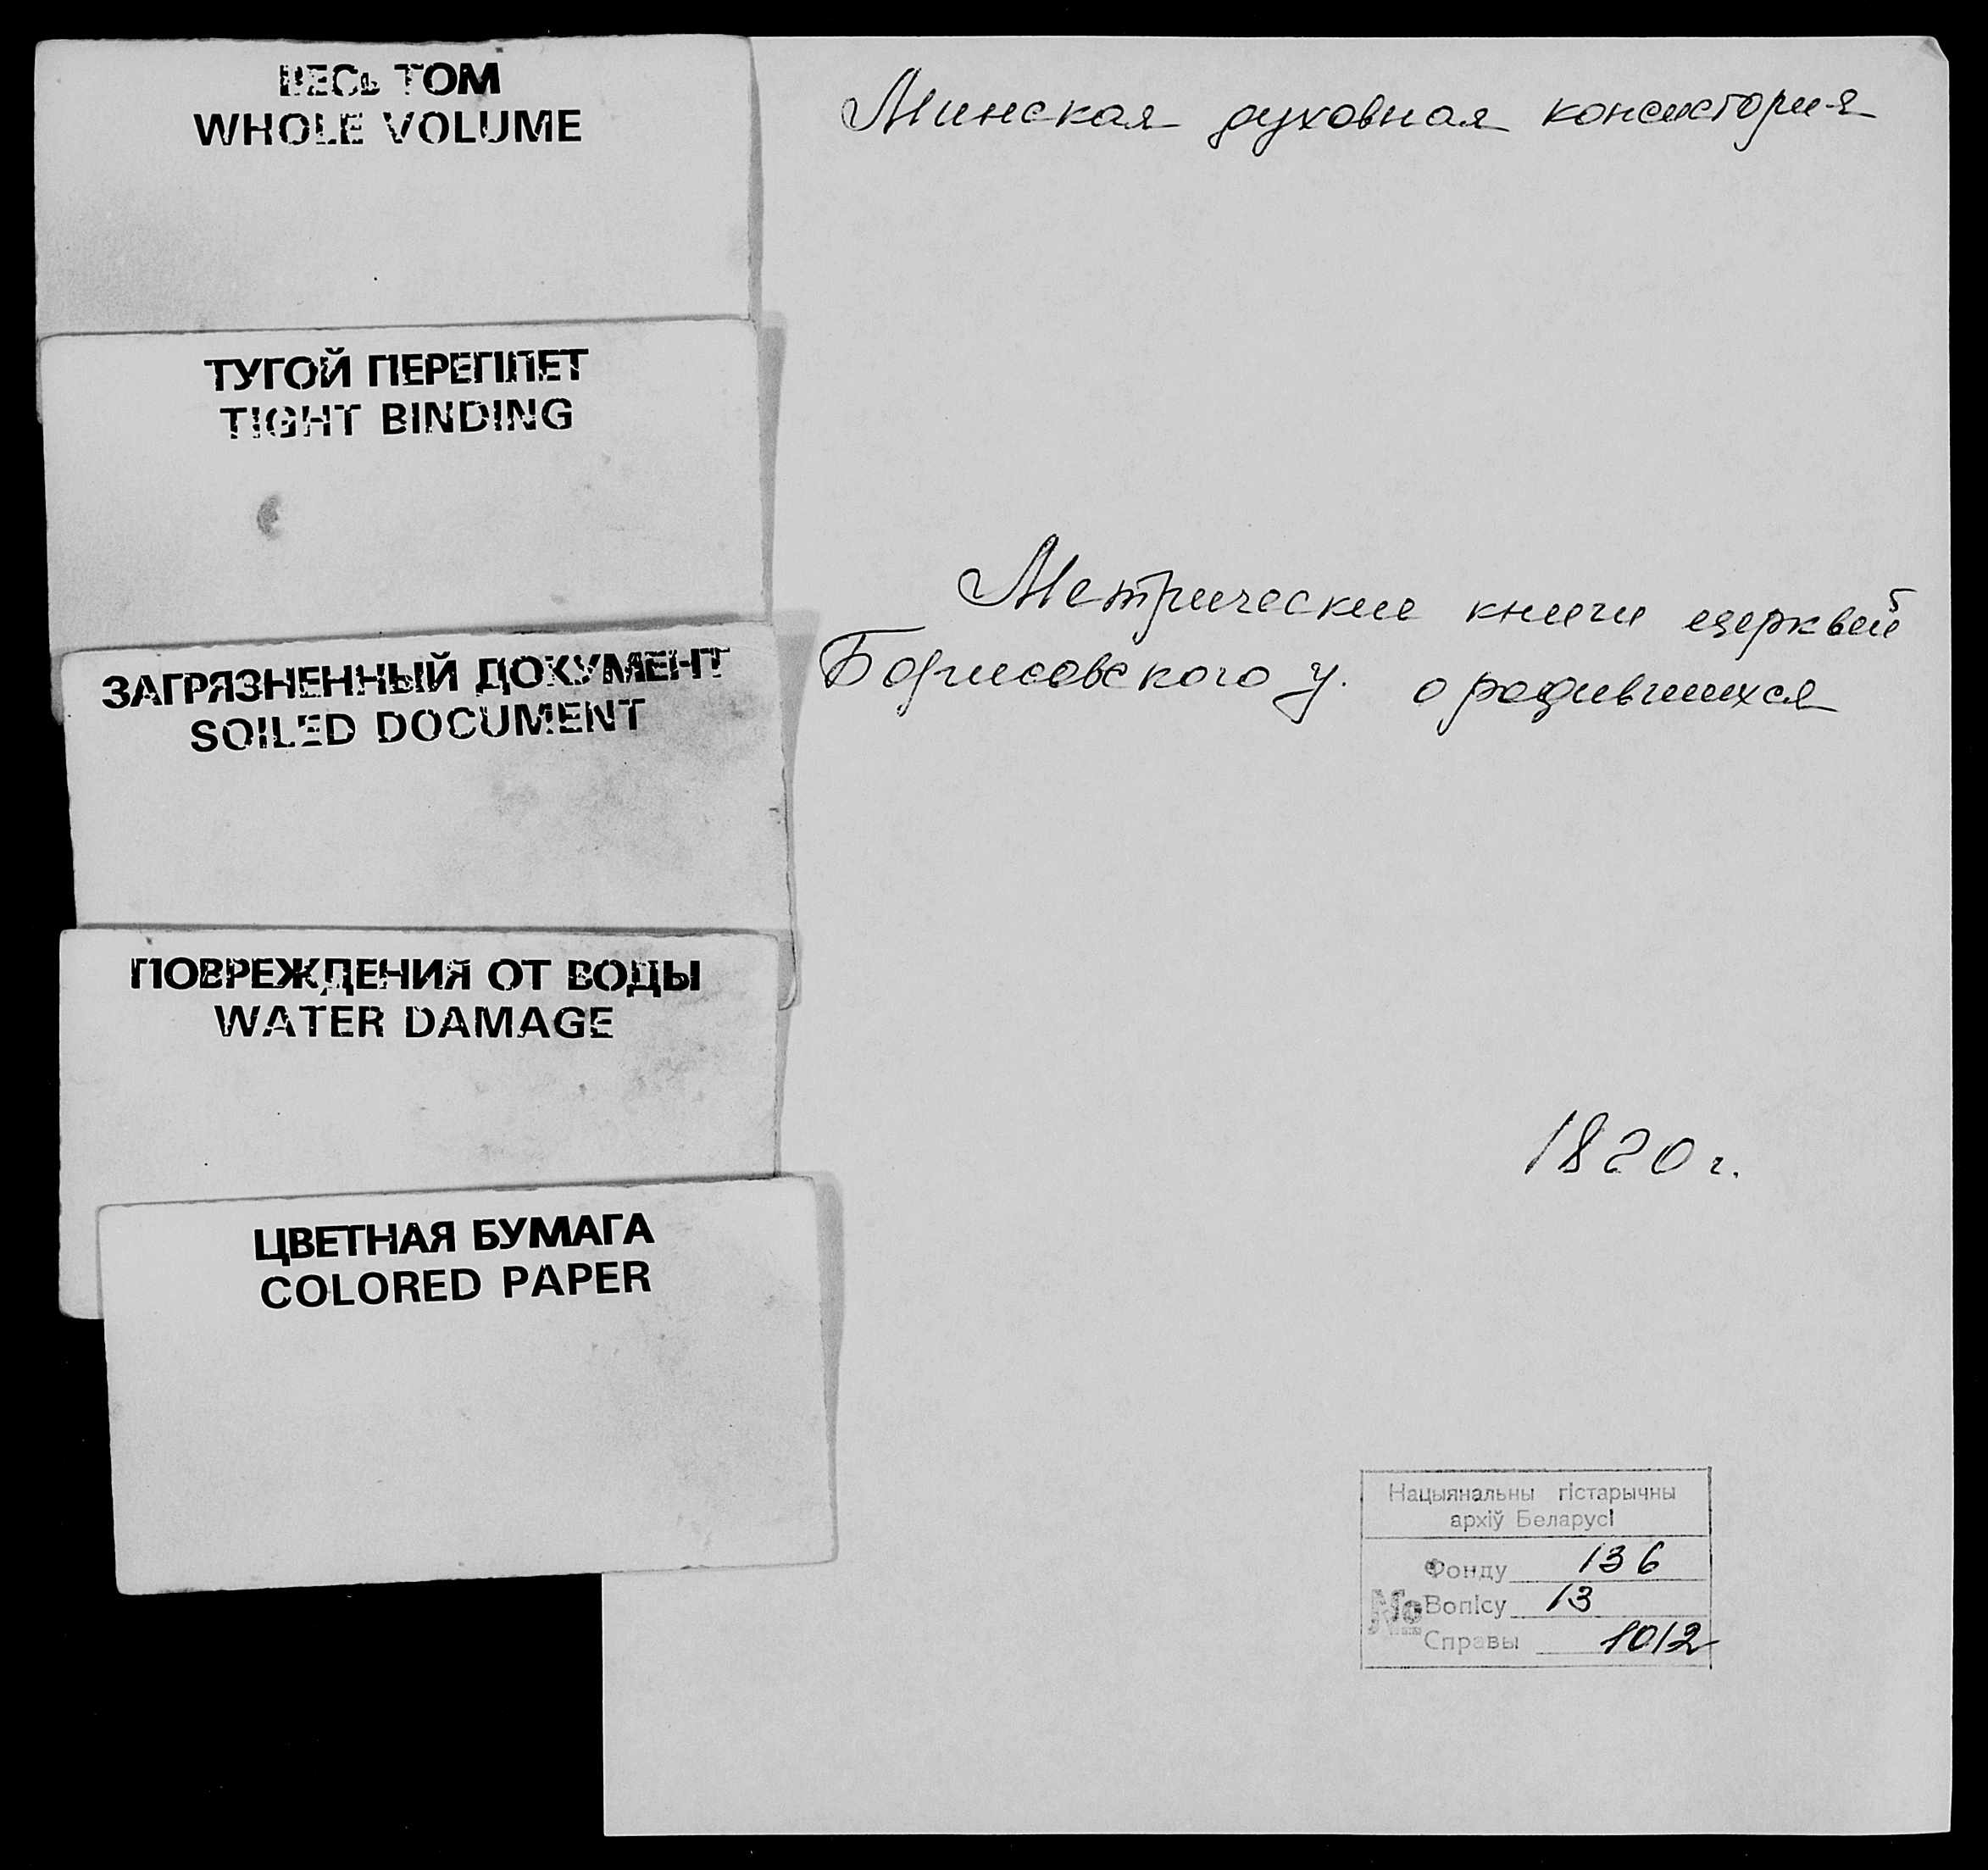 ВЕСЬ ТОМ
WHOLE VOLUME
ТУГОЙ ПЕРЕПЛЕТ
TIGHT BINDING
ЗАГРЯЗНЕННЫЙ ДОКУМЕНТ
SOILED DOCUMENT
ПОВРЕЖДЕНИЯ ОТ ВОДЫ
WATER DAMAGE
ЦВЕТНАЯ БУМАГА
COLORED PAPER
Минская духовная консистория
Метрические книги церквей
Борисовского у. о родившихся
1820 г.
Нацыянальны гістарычны
архіў Беларусі
Фонду 136
№ Вопісу 13
Справы 1012